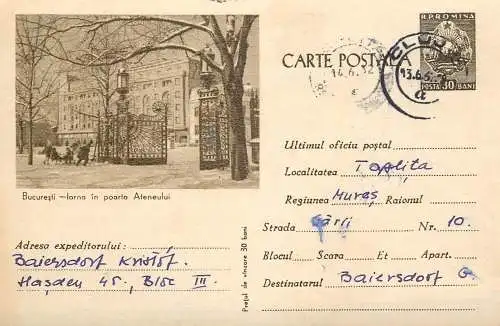 R.P.ROMINA
POSTA 30 BANI
CARTE POSTALA
CLUJ
14.6.
13.6.5
București —Iarna în poarta Ateneului
Ultimul oficiu poștal
Localitatea Toplița
Regiunea Mureș Raionul
Strada Gării Nr. 10.
Blocul Scara Et Apart.
Destinatarul Baiersdorf G.
Adresa expeditorului:
Baiersdorf Kristóf.
Hașdeu 45, Bloc III.
Prețul de vînzare 30 bani